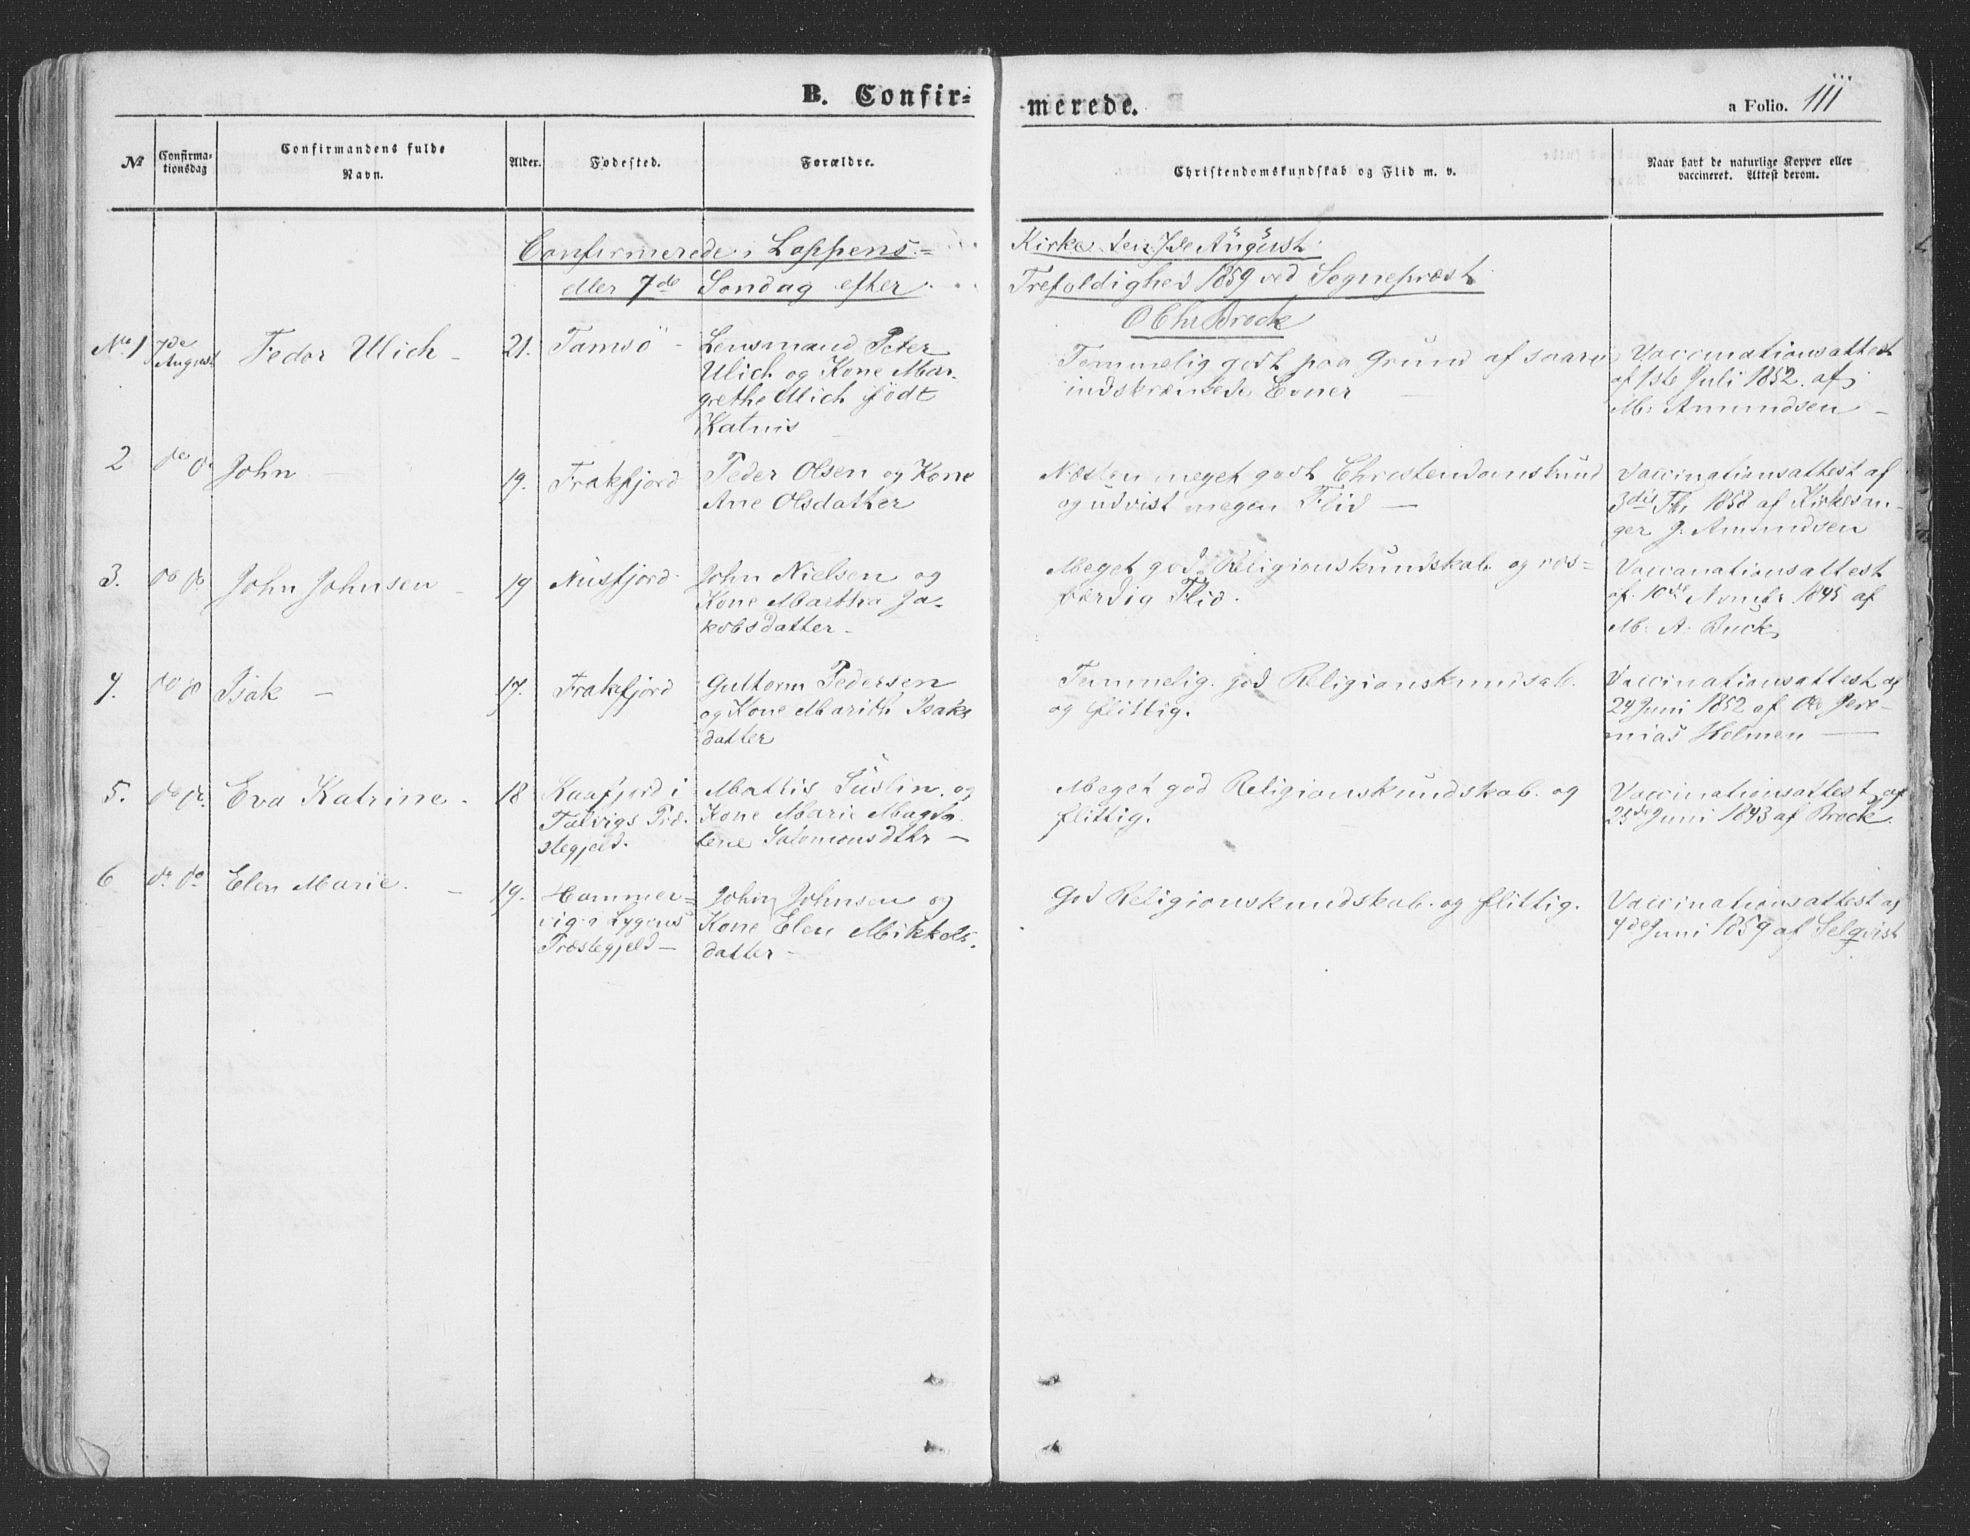 B. Confir=
-merede.
a Folio. 111
№
Confirma-
tionsdag
Confirmandens fulde
Navn.
Alder.
Fødested.
Forældre.
Christendomskundskab og Flid m. v.
Naar havt de naturlige Kopper eller
vaccineret. Attest derom.
Confirmerede i Loppens= Kirke den 7de August
eller 7de Søndag efter Trefoldighed 1859 ved Sognepræst
O Chr Brock
No 1
7de
August
Fedor Ulich -
21.
Tamsö -
Lensmand Peter
Ulich og Kone Mar-
grethe Ulich født
Katnis
Temmelig godt paa Grund af
indskrænkede Evner -
Vaccinationsattest
af 1ste Juli 1852. af
M. Amundsen -
2
do do
John -
19.
Frakfjord
Peder Olsen og Kone
Ane Olsdatter
Næsten meget godt Christendomskund
og udvist megen Flid -
Vaccinationsattest af
1858 af Kirkesan-
ger J. Amundsen
3.
do do
John Johnsen -
19
Nusfjord.
John Nielsen og
Kone Martha Ja-
kobsdatter -
Meget god Religionskundskab og ros-
værdig Flid.
Vaccanationsattest
af 10de Novmbr 1845 af
M. A. Buck
4.
do do
Isak -
17.
Frakfjord
Guttorm Pedersen
og Kone Marith Isaks
datter
Temmelig god Religionskundsab.
og flittig.
Vaccinationsattest af
24 Juni 1852 af Ole Jere-
mias Holmen -
5.
do do.
Eva Katrine.
18
Kaafjord i
Talvigs Præ.
stegjeld.
Mattis Suslin. og
Kone Marie Magda
lene Salomonsdttr -
Meget god Religionskundskab. og
flittig.
Vaccinationsattest af
25de Juni 1843 af Brock.
6
do do
Elen Marie. -
19.
Hammer=
vig i Lygens
Præstegjeld -
John Johnsen og
Kone Elen Mikkels.
datter -
God Religionskundskab. og flittig.
Vaccinationsattest af
4de Juni 1859 af Selqvist